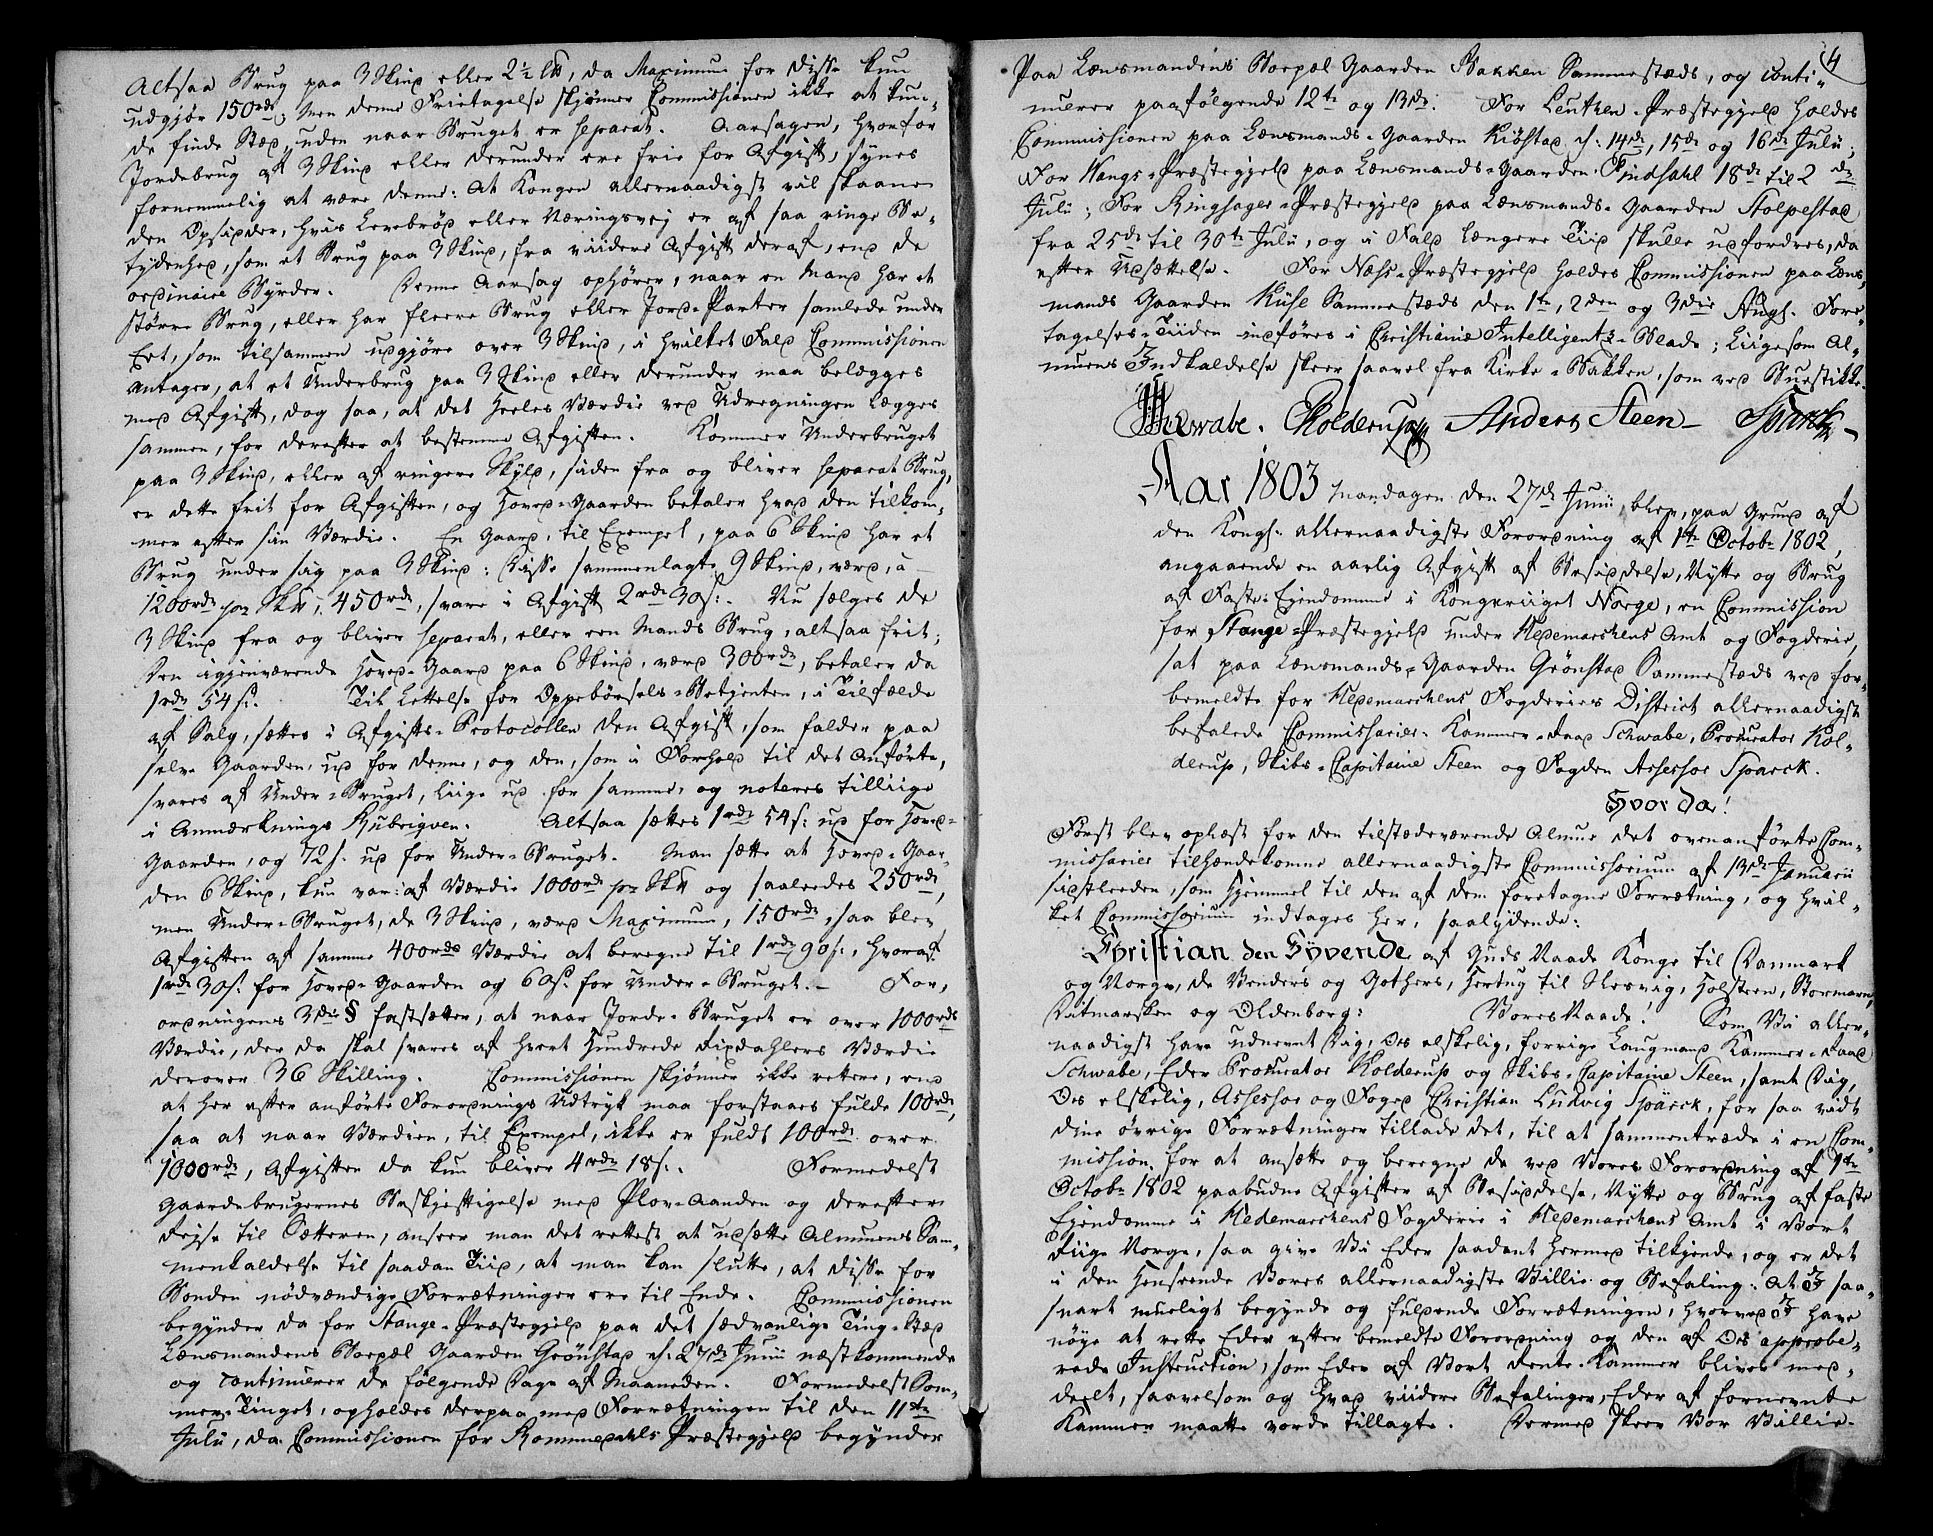 Altsaa Brug paa 3 Skind eller 2½ lb, da Maximum for disse kun
udgjør 150rd; Men denne Fritagelse skjønner Commissionen ikke at kun-
de finde Sted, uden naar Bruget er separat. Aarsagen, hvorfor
Jordebrug af 3 Skind eller derunder ere frie for Afgift, synes
fornemmelig at være denne: At Kongen allernaadigst vil skaane
den Opsidder, hvis Levebrød eller Næringsvej er af saa ringe Be-
tydenhed, som et Brug paa 3 Skind, fra viidere Afgift deraf, end de
ordinaire Byrder. Denne Aarsag ophører, naar en Mand har et
større Brug, eller har fleere Brug eller Jord-Parter samlede under
Eet, som tilsammen udgjøre over 3 Skind, i hvilket Fald Commissionen
antager, at et Underbrug paa 3 Skind eller derunder maa belægges
med Afgift, dog saa, at det Heeles Værdie ved Udregningen lægges
sammen, for derefter at bestemme Afgiften. Kommer Underbruget
paa 3 Skind, eller af ringere Skyld, siden fra og bliver separat Brug,
er dette frit for Afgiften, og Hoved-Gaarden betaler hvad den tilkom-
mer efter sin Værdie. En Gaard, til Exempel, paa 6 Skind har et
Brug under sig paa 3 Skind: Disse sammenlagte 9 Skind, værd, a
1200rd pr Skd, 450rd, svare i Afgift 2rd 30s. Nu sælges de
3 Skind fra og bliver separat, eller een Mands Brug, altsaa frit;
Den igjenværende Hoved-Gaard paa 6 Skind, værd 300rd, betaler da
1rd 54s. Til Lettelse for Oppebørsels-Betjenten, i Tilfælde
af Salg, sættes i Afgifts-Protocollen den Afgift, som falder paa
selve Gaarden, ud for denne, og den, som i Forhold til det Anførte,
svares af Under-Bruget, liige ud for samme, og noteres tilliige
i Anmærknings Rubriqven. Altsaa sættes 1rd 54s. ud for Hoved-
Gaarden, og 72s. ud for Under-Bruget. Man sætte at Hoved-Gaar-
den 6 Skind, kun var af Værdie 1000rd pr Skd og saaledes 250rd,
men Under-Bruget, de 3 Skind, værd Maximum, 150rd, saa blev
Afgiften af samme 400rds Værdie at beregne til 1rd 90s., hvoraf
1rd 30s. for Hoved-Gaarden og 60s. for Under-Bruget. – For-
ordningens 3die § fastsætter, at naar Jorde-Bruget er over 1000rds
Værdie, der da skal svares af hvert Hundrede Rixdahlers Værdie
derover 36 Skilling. Commissionen skjønner ikke rettere, end
at her efter anførte Forordnings Udtryk maa forstaaes fulde 100rd,
saa at naar Værdien, til Exempel, ikke er fuldt 100rd over
1000rd, Afgiften da kun bliver 4rd 18s. Formedelst
Gaardebrugernes Beskjæftigelse med Plov-Aanden og derefter
Rejse til Sætteren, anseer man det rettest at udsætte Almuens Sam-
menkaldelse til saadan Tiid, at man kan slutte, at disse for
Bonden nødvændige Forrætninger ere til Ende. Commissionen
begynder da for Stange-Præstegjeld paa det sædvanlige Ting-Sted
Lænsmandens Boepæl Gaarden Grønstad d. 27de Junii næstkommende
og continuerer de følgende Dage af Maaneden. Formedelst Som-
mer-Tinget, opholdes derpaa med Forrætningen til den 11te
Julii, da Commissionen for Rommedahls Præstegjeld begynder
4
Paa Lænsmandens Boepæl Gaarden Bakken Sammestæds, og conti-
nuerer paafølgende 12te og 13de. For Leuthen-Præstegjeld holdes
Commissionen paa Lænsmands-Gaarden Kiøstad d. 14de, 15de og 16de Julii;
For Vangs-Præstegjeld paa Lænsmands-Gaarden Finsahl 18de til 2 de
Julii; For Ringsager-Præstegjeld paa Lænsmands-Gaarden Stolpestad
fra 25de til 30te Julii, og i Fald længere Tiid skulle udfordres, da
efter Udsættelse. For Næss-Præstegjeld holdes Commissionen paa Læns-
mands Gaarden Kuse Sammestæds den 1te, 2den og 3die Augs. Fore-
tagelses-Tiiden indføres i Christiania Intelligentz-Blade; Liigesom Al-
muens Indkaldelse skeer saavel fra Kirke-Bakken, som ved Buestikke.
Schwabe. Kolderup Anders Steen – Sparck –
Aar 1803 Mandagen den 27de Junii, blev, paa Grund af
den Kongl. allernaadigste Forordning af 1te Octobr 1802,
angaaende en aarlig Afgift af Besiddelse, Nytte og Brug
af Faste-Ejendomme i Kongeriiget Norge, en Commission
for Stange-Præstegjeld under Hedemarckens Amt og Fogderie,
sat paa Lænsmands-Gaarden Grønstad Sammestæds ved for-
bemeldte for Hedemarckens Fogderies District allernaadigst
befalede Commissarier: Kammer-Raad Schwabe, Procurator Kol-
derup, Skibs-Capitaine Steen og Fogden Assessor Sparck.
Hvor da!
Først blev oplæst for den tilstædeværende Almue det ovenanførte Com-
missarier tilhændekomne allernaadigste Commissorium af 13de Januarii
sidstleeden, som Hjemmel til den af dem foretagne Forrætning, og hvil-
ket Commissorium indtages her, saalydende:
Christian den Syvende, af Guds Naade Konge til Danmark
og Norge, de Venders og Gothers, Hertug til Slesvig, Holsteen, Stormarn,
Ditmarsken og Oldenborg: Vores Naade! Som Vi aller-
naadigst have udnevnt Dig, Os elskelig, forrige Laugmand Kammer-Raad
Schwabe, Eder Procurator Kolderup og Skibs-Capitaine Steen, samt Dig,
Os elskelig, Assessor og Foged Christian Ludvig Spärck, for saa vidt
dine øvrige Forrætninger tillade det, til at sammentræde i en Com-
mission, for at ansætte og beregne de ved Vores Forordning af 1te
Octobr 1802 paabudne Afgifter af Besiddelse, Nytte og Brug af faste
Ejendomme i Hedemarckens Fogderie i Hedemarckens Amt i Vort
Riige Norge, saa give Vi Eder saadant hermed tilkjende, og er det
i den Henseende Vores allernaadigste Villie og Befaling: At I saa-
snart mueligt begynde og fuldende Forrætningen, hvorved I have
nøye at rette Eder efter bemeldte Forordning og den af Os approbe-
rede Instruction, som Eder af Vort Rente-Kammer bliver med-
deelt, saavelsom og hvad viidere Befalinger, Eder af fornevnte
Kammer maatte vorde tillagte. Dermed skeer Vor Villie.